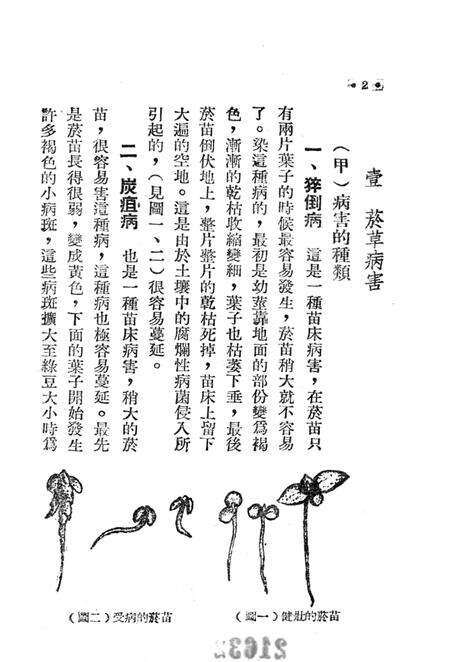 2
壹　菸草病害
（甲）病害的種類
一、猝倒病　這是一種苗床病害，在菸苗只
有兩片葉子的時候最容易發生，菸苗稍大就不容易
了。染這種病的，最初是幼莖靠地面的部份變爲褐
色，漸漸的乾枯收縮變細，葉子也枯萎下垂，最後
菸苗倒伏地上，整片整片的乾枯死掉，苗床上留下
大遍的空地。這是由於土壤中的腐爛性病菌侵入所
引起的，（見圖一、二）很容易蔓延。
二、炭疽病　也是一種苗床病害，稍大的菸
苗，很容易害這種病，這種病也極容易蔓延。最先
是菸苗長得很弱，變成黃色，下面的葉子開始發生
許多褐色的小病斑，這些病斑擴大至綠豆大小時爲
（圖一）健壯的菸苗
（圖二）受病的菸苗